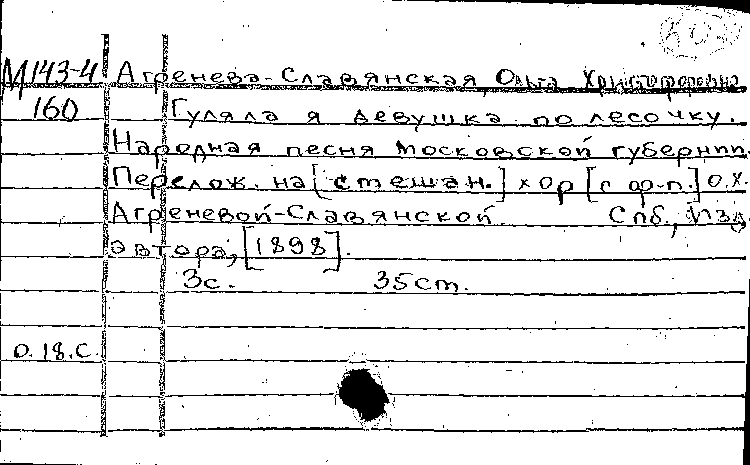 М143-4 Агренева-Славянская, Ольга Христофоровна
160 Гуляла я девушка по лесочку.
Народная песня Московской губернии.
Перелож. на [смешан.] хор [с ф-п.] О.Х.
Агреневой-Славянской. Спб., Изд.
автора, [1898].
3с. 35см.
О.18.С.